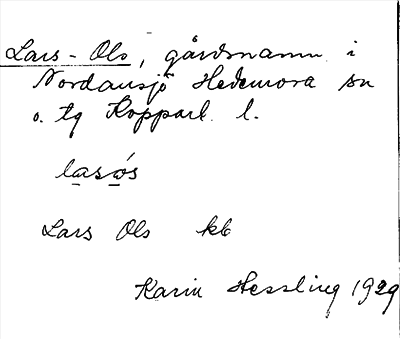 Lars-Ols, gårdsnamn i
Nordansjö Hedemora sn
o. tg Kopparb. l.
lasós
Lars Ols kb
Karin Hessling 1929